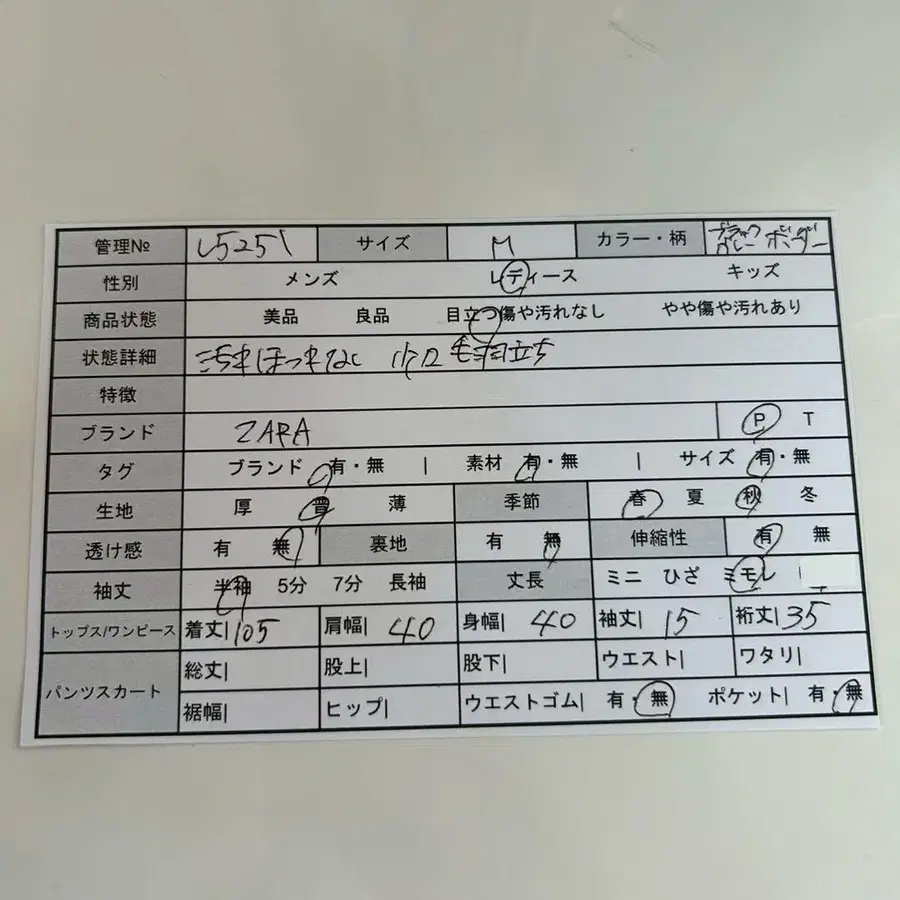 管理№ L5251 サイズ M カラー・柄 ブラック グレー ボーダー
性別 メンズ レディース キッズ
商品状態 美品 良品 目立つ傷や汚れなし やや傷や汚れあり
状態詳細 汚れほつれなし 毛羽立ち
特徴
ブランド ZARA P T
タグ ブランド 有・無 | 素材 有・無 | サイズ 有・無
生地 厚 普 薄 季節 春 夏 秋 冬
透け感 有 無 裏地 有 無 伸縮性 有 無
袖丈 半袖 5分 7分 長袖 丈長 ミニ ひざ ミモレ
トップス/ワンピース 着丈| 105 肩幅| 40 身幅| 40 袖丈| 15 裄丈| 35
パンツスカート 総丈| 股上| 股下| ウエスト| ワタリ|
裾幅| ヒップ| ウエストゴム| 有・無 ポケット| 有・無